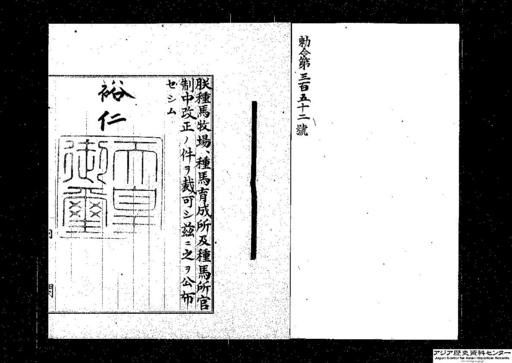 勅令第三百五十二號
朕種馬牧場、種馬育成所及種馬所官
制中改正ノ件ヲ裁可シ茲ニ之ヲ公布
セシム
裕仁
天皇
御璽
内
閣
アジア歴史資料センター
Japan Center for Asian Historical Records